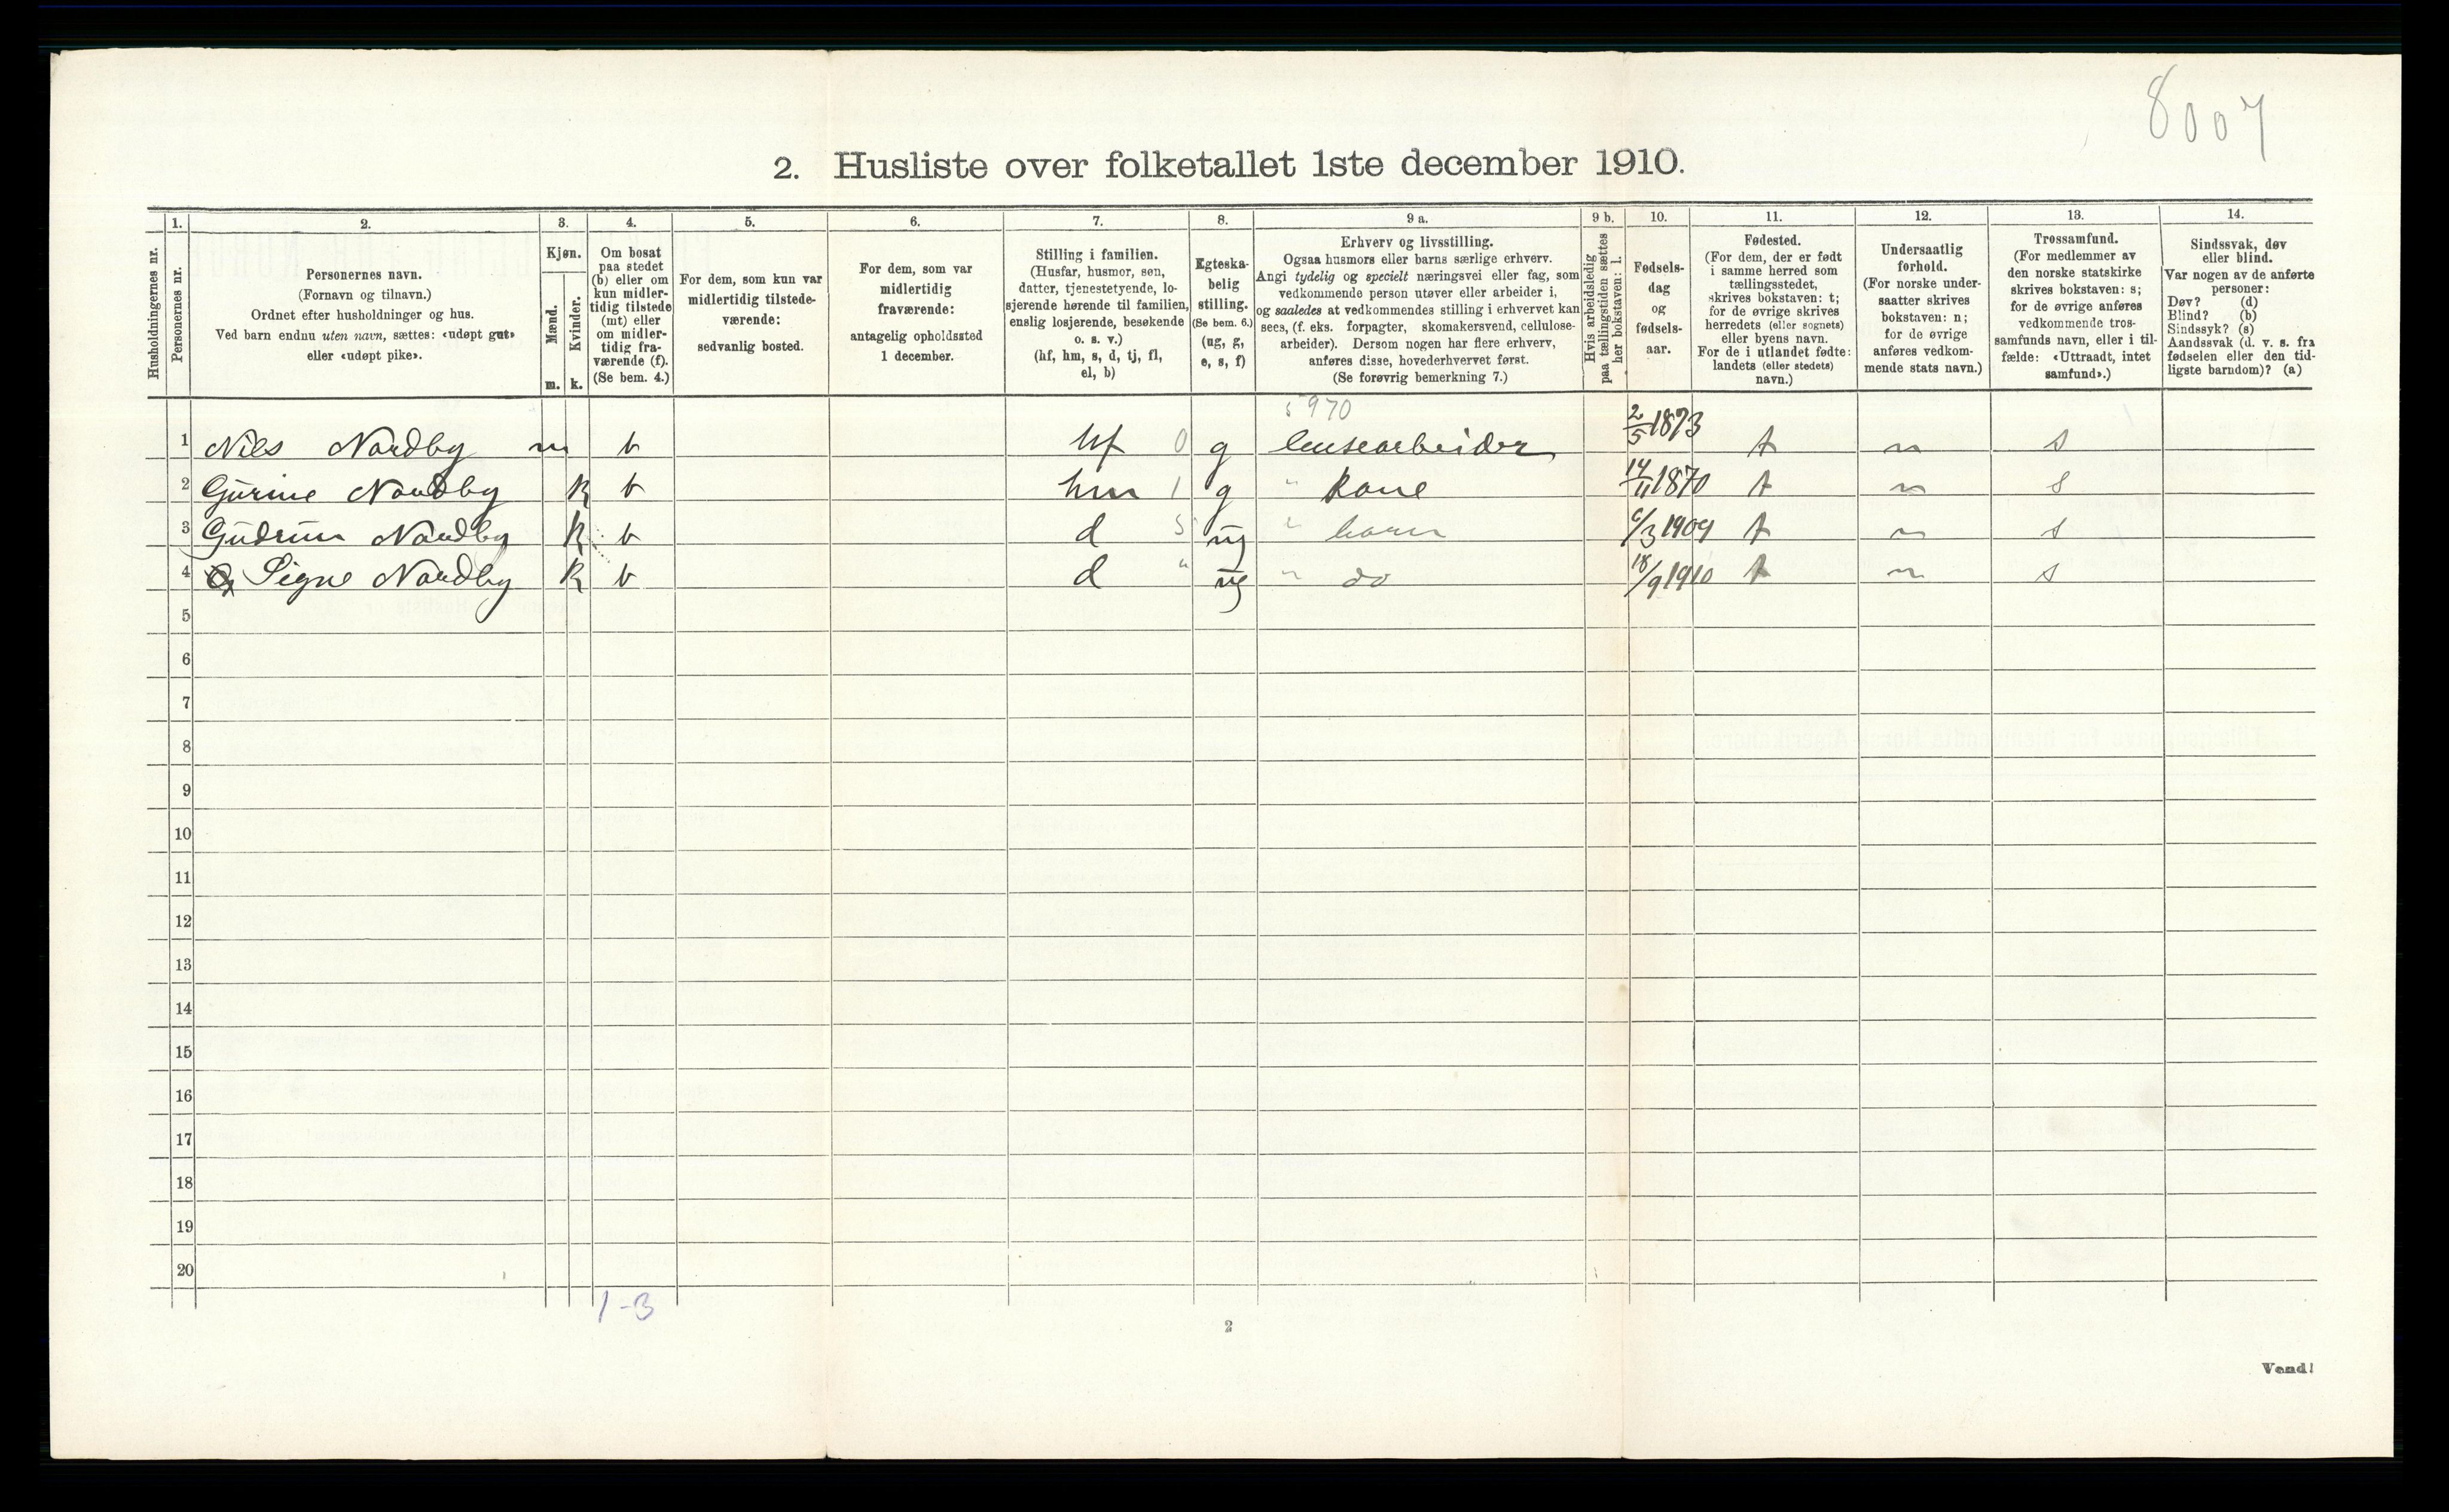 8007
2. Husliste over folketallet 1ste december 1910.
Husholdningernes nr.
1.
Personernes nr.
2.
Personernes navn.
(Fornavn og tilnavn.)
Ordnet efter husholdninger og hus.
Ved barn endnu uten navn, sættes: «udøpt gut»
eller «udøpt pike».
3.
Kjøn.
Mænd.
m.
Kvinder.
k.
4.
Om bosat
paa stedet
(b) eller om
kun midler-
tidig tilstede
(mt) eller
om midler-
tidig fra-
værende (f).
(Se bem. 4.)
5.
For dem, som kun var
midlertidig tilstede-
værende:
sedvanlig bosted.
6.
For dem, som var
midlertidig
fraværende:
antagelig opholdssted
1 december.
7.
Stilling i familien.
(Husfar, husmor, søn,
datter, tjenestetyende, lo-
sjerende hørende til familien,
enslig losjerende, besøkende
o. s. v.)
(hf, hm, s, d, tj, fl,
el, b)
8.
Egteska-
belig
stilling.
(Se bem. 6.)
(ug, g,
e, s, f)
9 a.
Erhverv og livsstilling.
Ogsaa husmors eller barns særlige erhverv.
Angi tydelig og specielt næringsvei eller fag, som
vedkommende person utøver eller arbeider i,
og saaledes at vedkommendes stilling i erhvervet kan
sees, (f. eks. forpagter, skomakersvend, cellulose-
arbeider). Dersom nogen har flere erhverv,
anføres disse, hovederhvervet først.
(Se forøvrig bemerkning 7.)
9 b.
Hvis arbeidsledig
paa tællingstiden sættes
her bokstaven: l.
10.
Fødsels-
dag
og
fødsels-
aar.
11.
Fødested.
(For dem, der er født
i samme herred som
tællingsstedet,
skrives bokstaven: t;
for de øvrige skrives
herredets (eller sognets)
eller byens navn.
For de i utlandet fødte:
landets (eller stedets)
navn.)
12.
Undersaatlig
forhold.
(For norske under-
saatter skrives
bokstaven: n;
for de øvrige
anføres vedkom-
mende stats navn.)
13.
Trossamfund.
(For medlemmer av
den norske statskirke
skrives bokstaven: s;
for de øvrige anføres
vedkommende tros-
samfunds navn, eller i til-
fælde: «Uttraadt, intet
samfund».)
14.
Sindssvak, døv
eller blind.
Var nogen av de anførte
personer:
Døv? (d)
Blind? (b)
Sindssyk? (s)
Aandssvak (d. v. s. fra
fødselen eller den tid-
ligste barndom)? (a)
5970
1 Nils Nordby m b hf 0 g lensearbeider 2/5 1873 t n s
2 Gurine Nordby k b hm 1 g " kone 14/11 1870 t n s
3 Gudrun Nordby k b d 5 ug " barn 6/3 1909 t n s
4 Signe Nordby k b d " ug " do 18/9 1910 t n s
5
6
7
8
9
10
11
12
13
14
15
16
17
18
19
20
1-3
2
Vend!